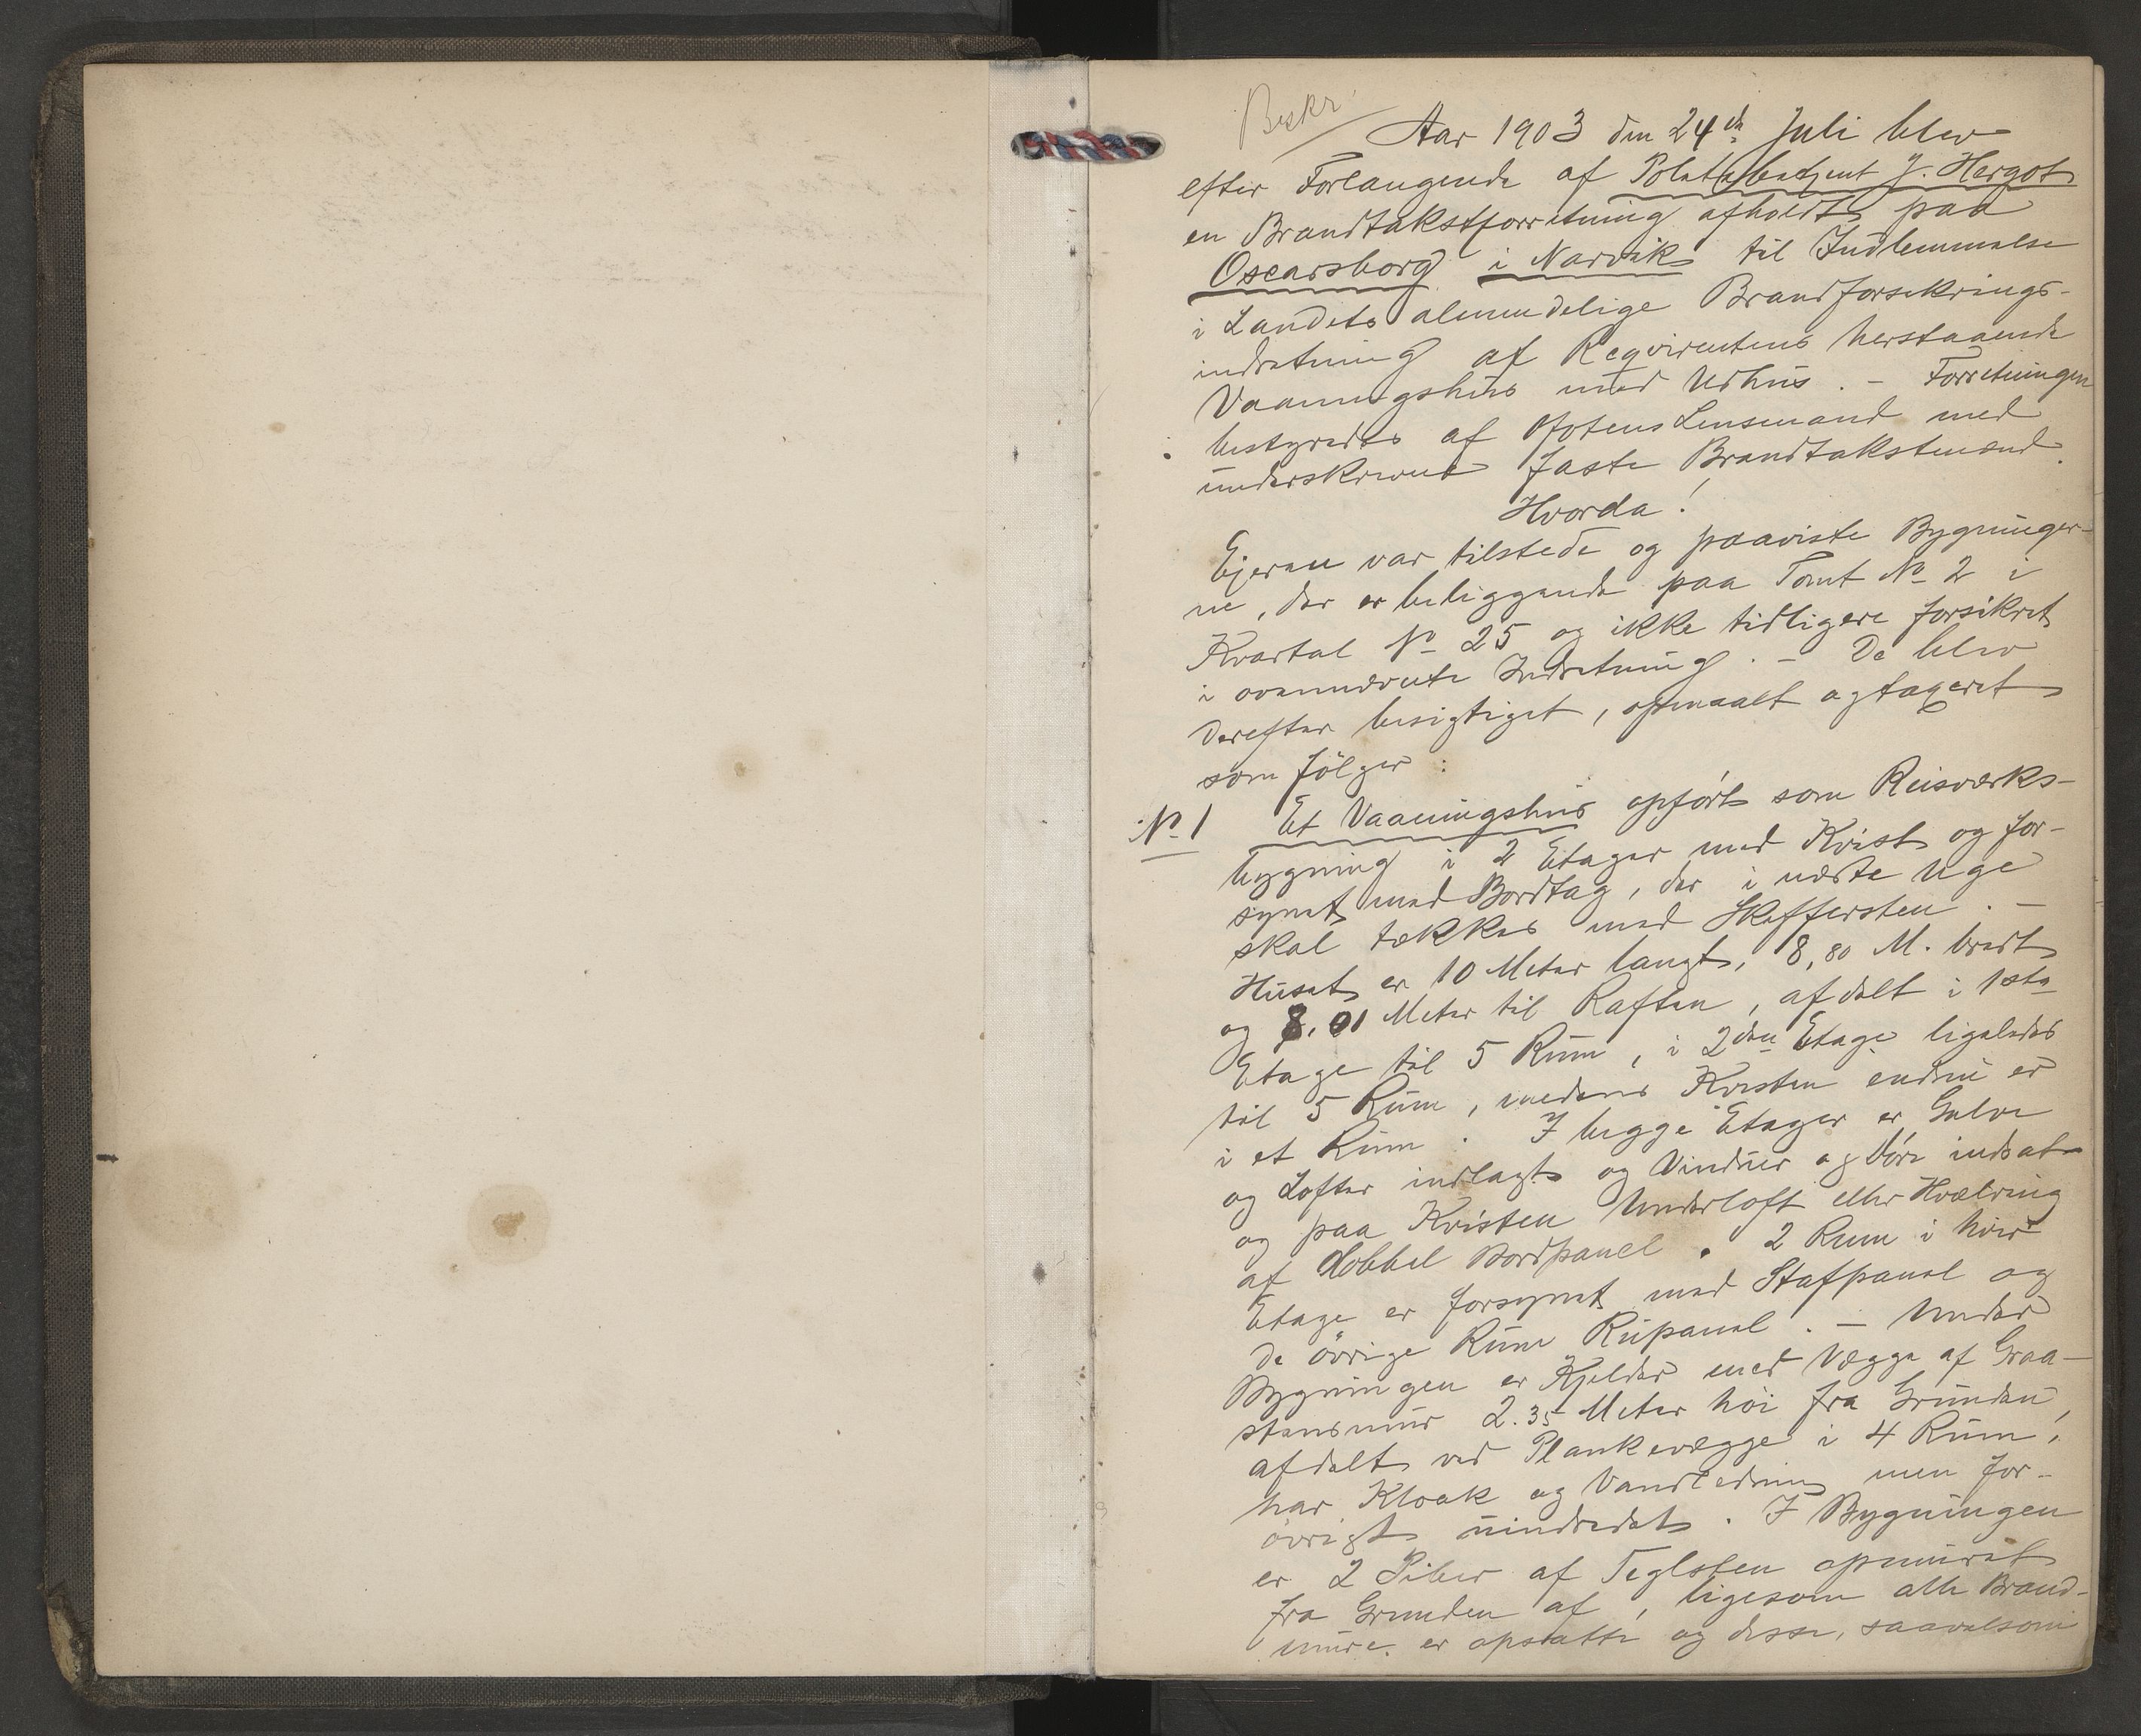 Beskr.
Aar 1903 den 24de Juli blev
efter Forlangende af Politibetjent J. Hergot
en Brandtakstforretning afholdt paa
Oscarsborg i Narvik til Indlemmelse
i Landets almindelige Brandforsikrings-
indretning af Reqvirentens herstaaende
Vaaningshus med Udhus. - Forretningen
bestyredes af Ofotens Lensmand med
underskrevne faste Brandtakstmænd.
Hvorda!
Ejeren var tilstede og paaviste Bygninger-
ne, der er beliggende paa Tomt No 2 i
Kvartal No 25 og ikke tidligere forsikret
i ovennævnte Indretning. - De blev
derefter besigtiget, opmaalt og taxeret
som følger:
No 1 Et Vaaningshus opført som Reisværks-
bygning i 2 Etager med Kvist og for-
synet med Bordtag, der i næste Uge
skal tækkes med Skiffersten. -
Huset er 10 Meter langt, 8,80 M. bredt
og 8.01 Meter til Raften, afdelt i 1ste
Etage til 5 Rum, i 2den Etage ligeledes
til 5 Rum, medens Kvisten endnu er
i et Rum. I begge Etager er Gulve
og Lofter indlagt og Vinduer og Døre indsat
og paa Kvisten Underloft eller Hvælving
af dobbel Bordpanel. 2 Rum i hver
Etage er forsynet med Stafpanel og
de øvrige Rum Rupanel. - Under
Bygningen er Kjelder med Vægge af Graa-
stensmur 2.35 Meter høi fra Grunden,
afdelt ved Plankevægge i 4 Rum,
har Kloak og Vandledning men for-
øvrigt uindredet. I Bygningen
er 2 Piber af Teglsten opmuret
fra Grunden af, ligesom alle Brand-
mure er opsatte og disse, saavelsom